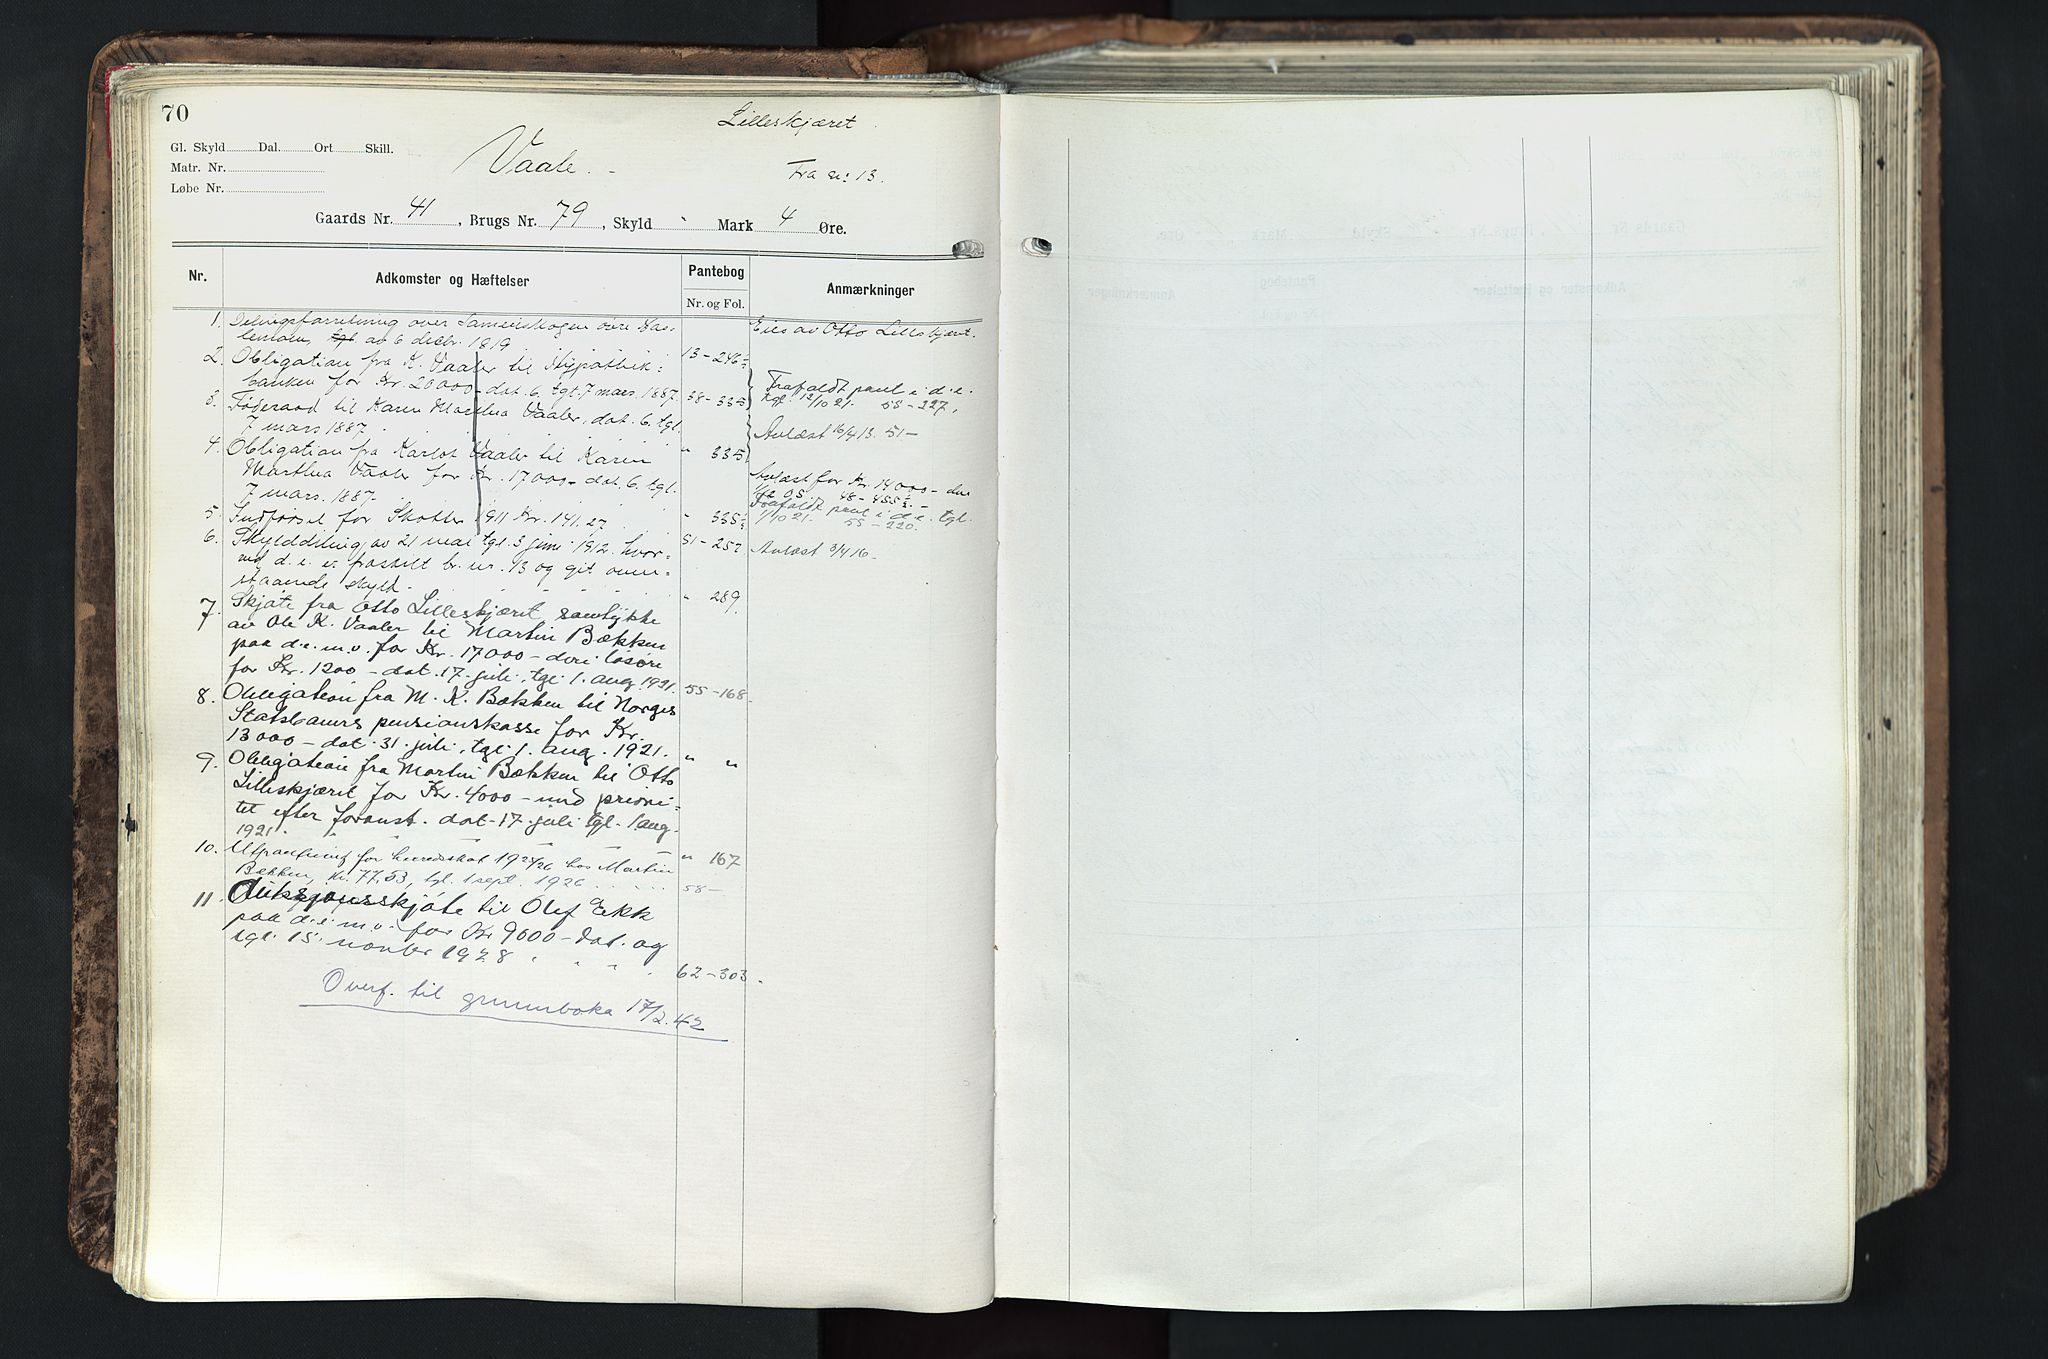 70
Lilleskjæret.
Gl. Skyld Dal. Ort Skill.
Matr. Nr.
Løbe Nr.
Vaale.
Fra nr: 13.
Gaards Nr. 41, Brugs Nr. 79, Skyld - Mark 4 Øre.
Nr. Adkomster og Hæftelser Pantebog Nr. og Fol. Anmærkninger
1. Delingsforretning over Sameieskogen øvre
av 6 decbr. 1819 13-246½ Eies av Otto Lilleskjæret.
2. Obligation fra K. Vaaler til Hypothek-
banken for Kr. 20000- dat. 6. tgl. 7 mars. 1887. 38-335 Frafaldt pant i d. e.
tgl. 12/10 21. 55-227.
3. Føderaad til Karen Marthea Vaaler, dat. 6. tgl.
7 mars 1887. " 335 Avlæst 16/4 13. 51-
4. Obligation fra Karlot Vaaler til Karen
Marthea Vaaler for Kr. 17000- dat. 6. tgl.
7 mars. 1887. " 335½ Avlæst for Kr. 14000- den
05. 48-455½-
Frafaldt pant i d. e. tgl.
1/10 21. 55-220.
5. Indførsel for Skatter 1911 Kr. 141.27 51-252 Avlæst 3/4 16-
6. Skylddeling av 21 mai tgl. 3 juni 1912. hvor-
ved d. e. er fraskilt br. nr. 13 og git oven-
staaende skyld. " 289.
7. Skjøte fra Otto Lilleskjæret samtykke
av Ole K. Vaaler til Martin Bækken
paa d. e. m. v. for Kr. 17000- deri løsøre
for Kr. 1200- dat. 17. juli, tgl. 1. aug. 1921. 55-168.
8. Obligation fra M. K. Bækken til Norges
Statsbaners pensionskasse for Kr.
13000- dat. 31. juli, tgl. 1. aug. 1921. " "
9. Obligation fra Martin Bækken til Otto
Lilleskjæret for Kr. 4000- med priori-
tet efter foranst. dat. 17 juli tgl. 1 aug.
1921. " 167
10. Utpantning for herredsskat 1925/26 hos Martin
Bækken, kr. 77,53, tgl. 1 sept. 1926 58-
11. Auksjonsskjøte til Olef Ekk
paa d. e. m. v. for Kr 9600- dat. og
tgl. 15. novbr 1928 62-303.
Overf. til grunnboka 17/2.42